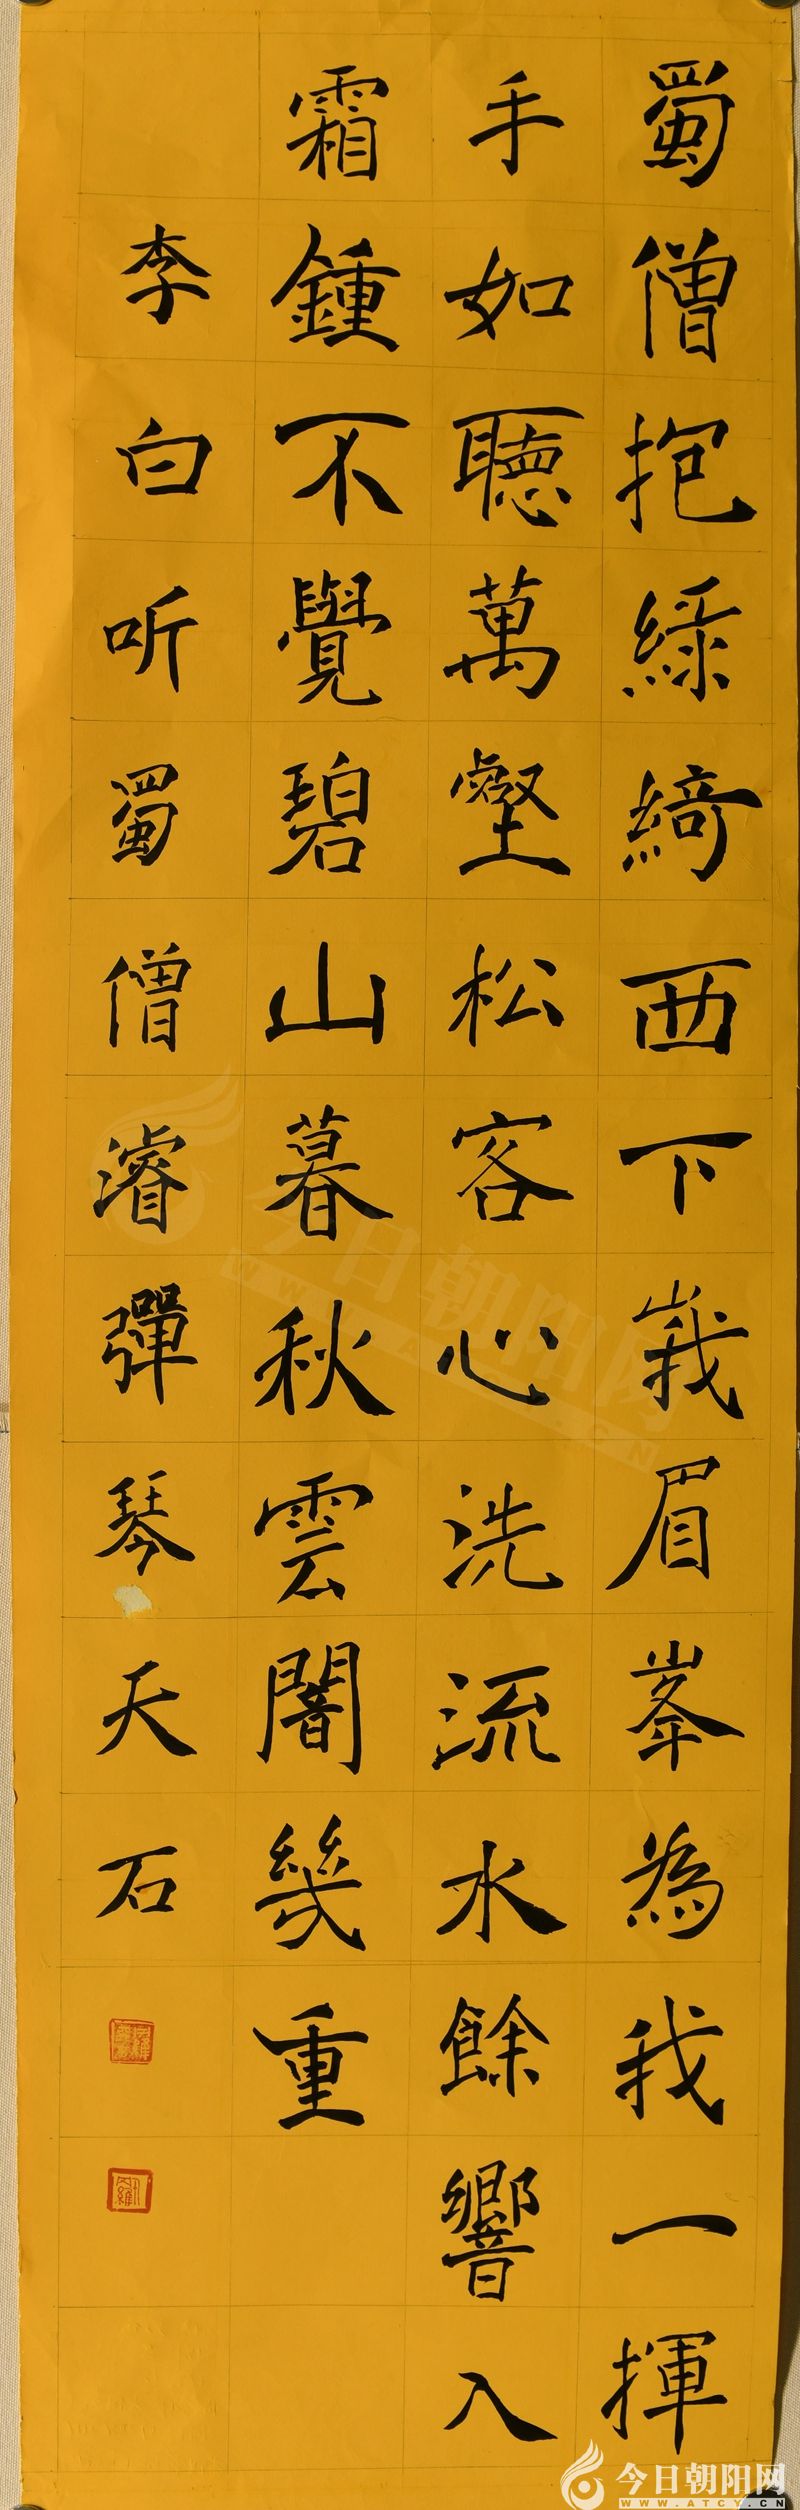 蜀僧抱綠綺西下峩眉峯為我一揮
手如聽萬壑松客心洗流水餘響入
霜鍾不覺碧山暮秋雲闇幾重
李白听蜀僧濬彈琴天石
今日朝阳网
WWW.ATCY.CN